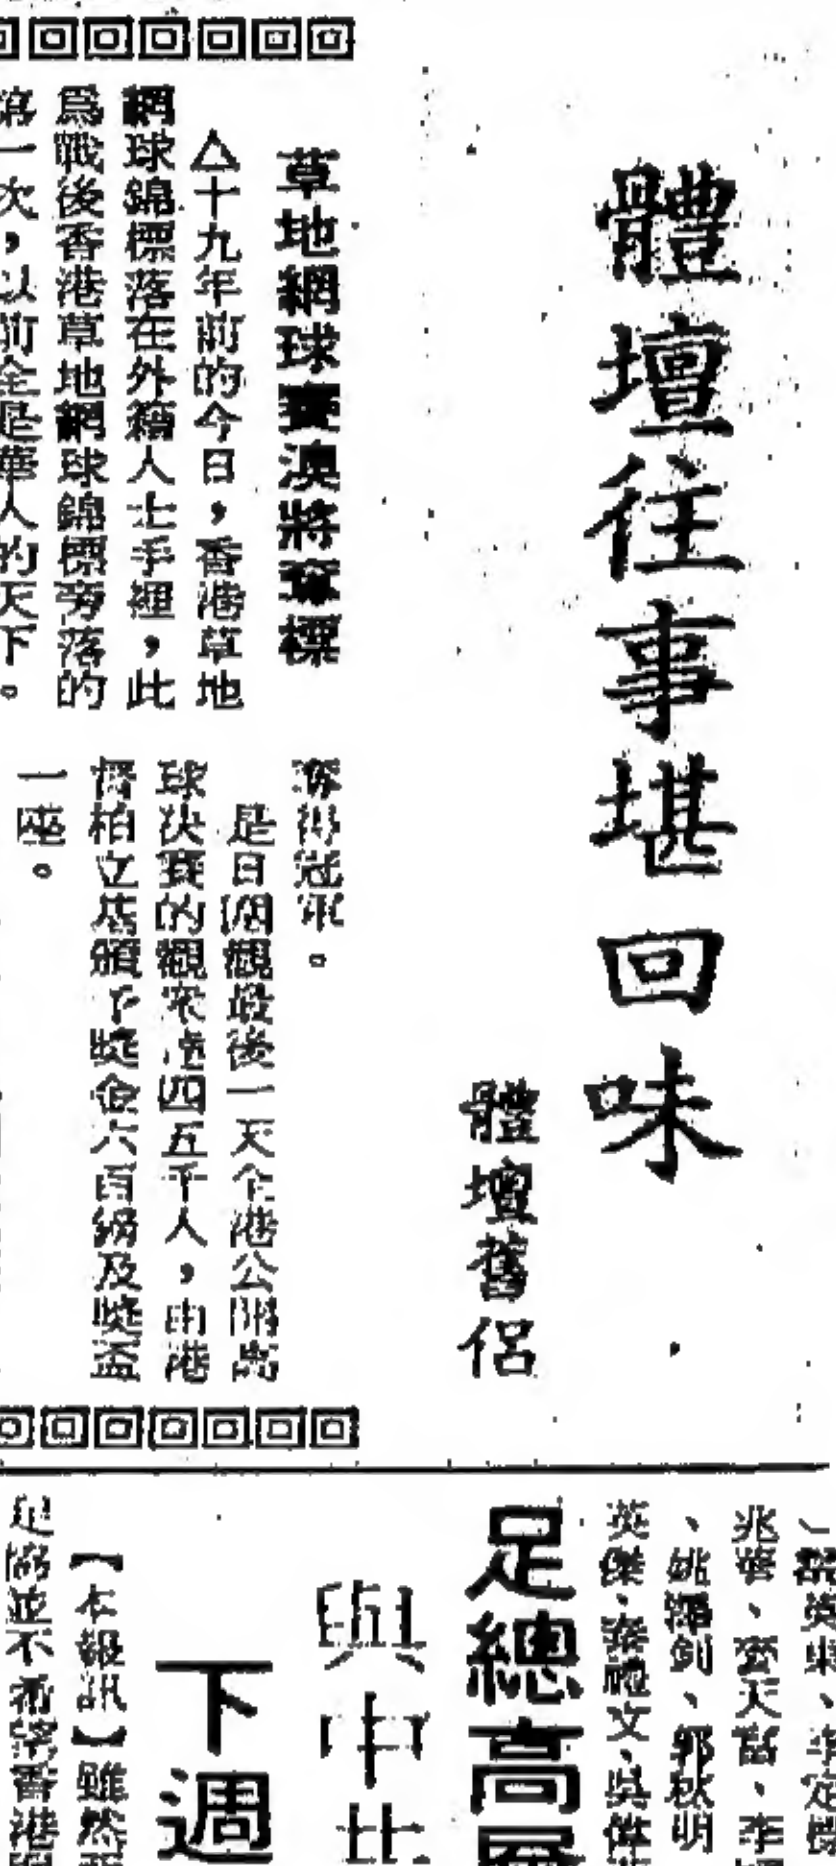 體壇往事堪回味
體壇舊侶
草地網球賽澳將奪標
△十九年前的今日，香港草地
網球錦標落在外籍人士手裡，此
爲戰後香港草地網球錦標旁落的
第一次，以前全是華人的天下。
奪得冠軍。
是日觀最後一天全港公開
球決賽的觀衆達四五千人，由港
督柏立基頒下獎金六百鎊及獎盃
一座。
李定
兆華、李
、姚 劍、郭秋明
英傑、文、吳偉
足總高層
與中
下週
【本報訊】雖然
足協並不希望香港